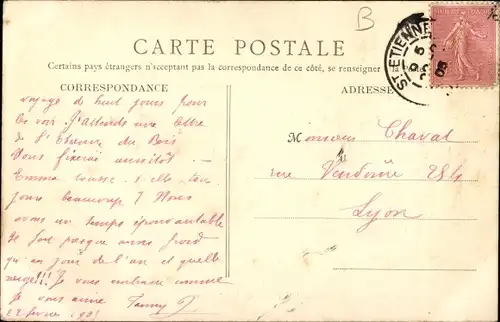 B
CARTE POSTALE
Certains pays étrangers n'acceptant pas la correspondance de ce côté, se renseigner à la poste
CORRESPONDANCE
ADRESSE
ST ETIENNE
voyage de huit jours pour
te voir. J'attends une lettre
de l'Etienne du Bois
Vous fixerai aussitôt
Emma tousse t elle tou
jours beaucoup ? Nous
avons un temps épouvantable
Il fait presque aussi froid
qu'au jour de l'an et quelle
neige!!! Je vous embrasse comme
Je vous aime Fanny
Monsieur Chaval
rue Vendôme
Lyon